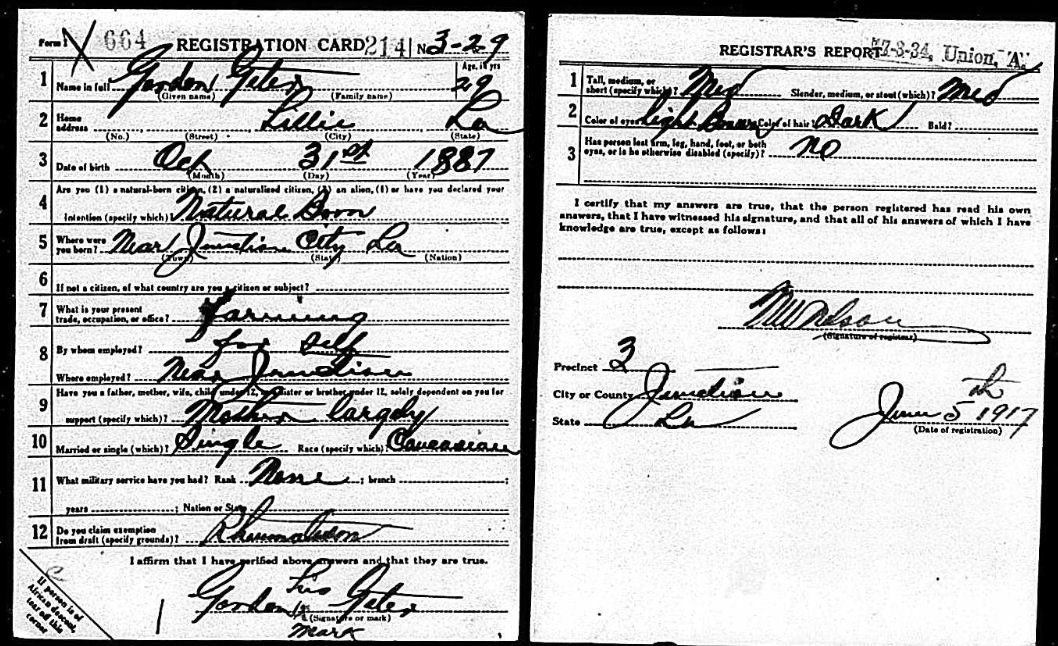 Form 1 664 REGISTRATION CARD 214 No. 3-29
1 Name in full Gordon Gates Age, in yrs 29
(Given name) (Family name)
2 Home address Lillie La
(No.) (Street) (City) (State)
3 Date of birth Oct 31st 1887
(Month) (Day) (Year)
Are you (1) a natural-born citizen, (2) a naturalized citizen, (3) an alien, (4) or have you declared your
4 intention (specify which)? Natural Born
5 Where were you born? Near Junction City La
(Town) (State) (Nation)
6 If not a citizen, of what country are you a citizen or subject?
7 What is your present trade, occupation, or office? Farming
8 By whom employed? for self
Where employed? Near Junction
Have you a father, mother, wife, child under 12, or a sister or brother under 12, solely dependent on you for
9 support (specify which)? Mother largely
10 Married or single (which)? Single Race (specify which)? Caucasian
11 What military service have you had? Rank None ; branch ;
years ; Nation or State
12 Do you claim exemption from draft (specify grounds)? Rhumatism
I affirm that I have verified above answers and that they are true.
his
Gordon x Gates
(Signature or mark)
mark
If person is of
African descent,
tear off this
corner
REGISTRAR'S REPORT 17-3-34, Union, "A".
1 Tall, medium, or short (specify which)? Med Slender, medium, or stout (which)? Med
2 Color of eyes light Brown Color of hair Dark Bald?
3 Has person lost arm, leg, hand, foot, or both eyes, or is he otherwise disabled (specify)? no
I certify that my answers are true, that the person registered has read his own
answers, that I have witnessed his signature, and that all of his answers of which I have
knowledge are true, except as follows:
Nelson
(Signature of registrar)
Precinct 3
City or County Junction
State La
June 5th 1917
(Date of registration)